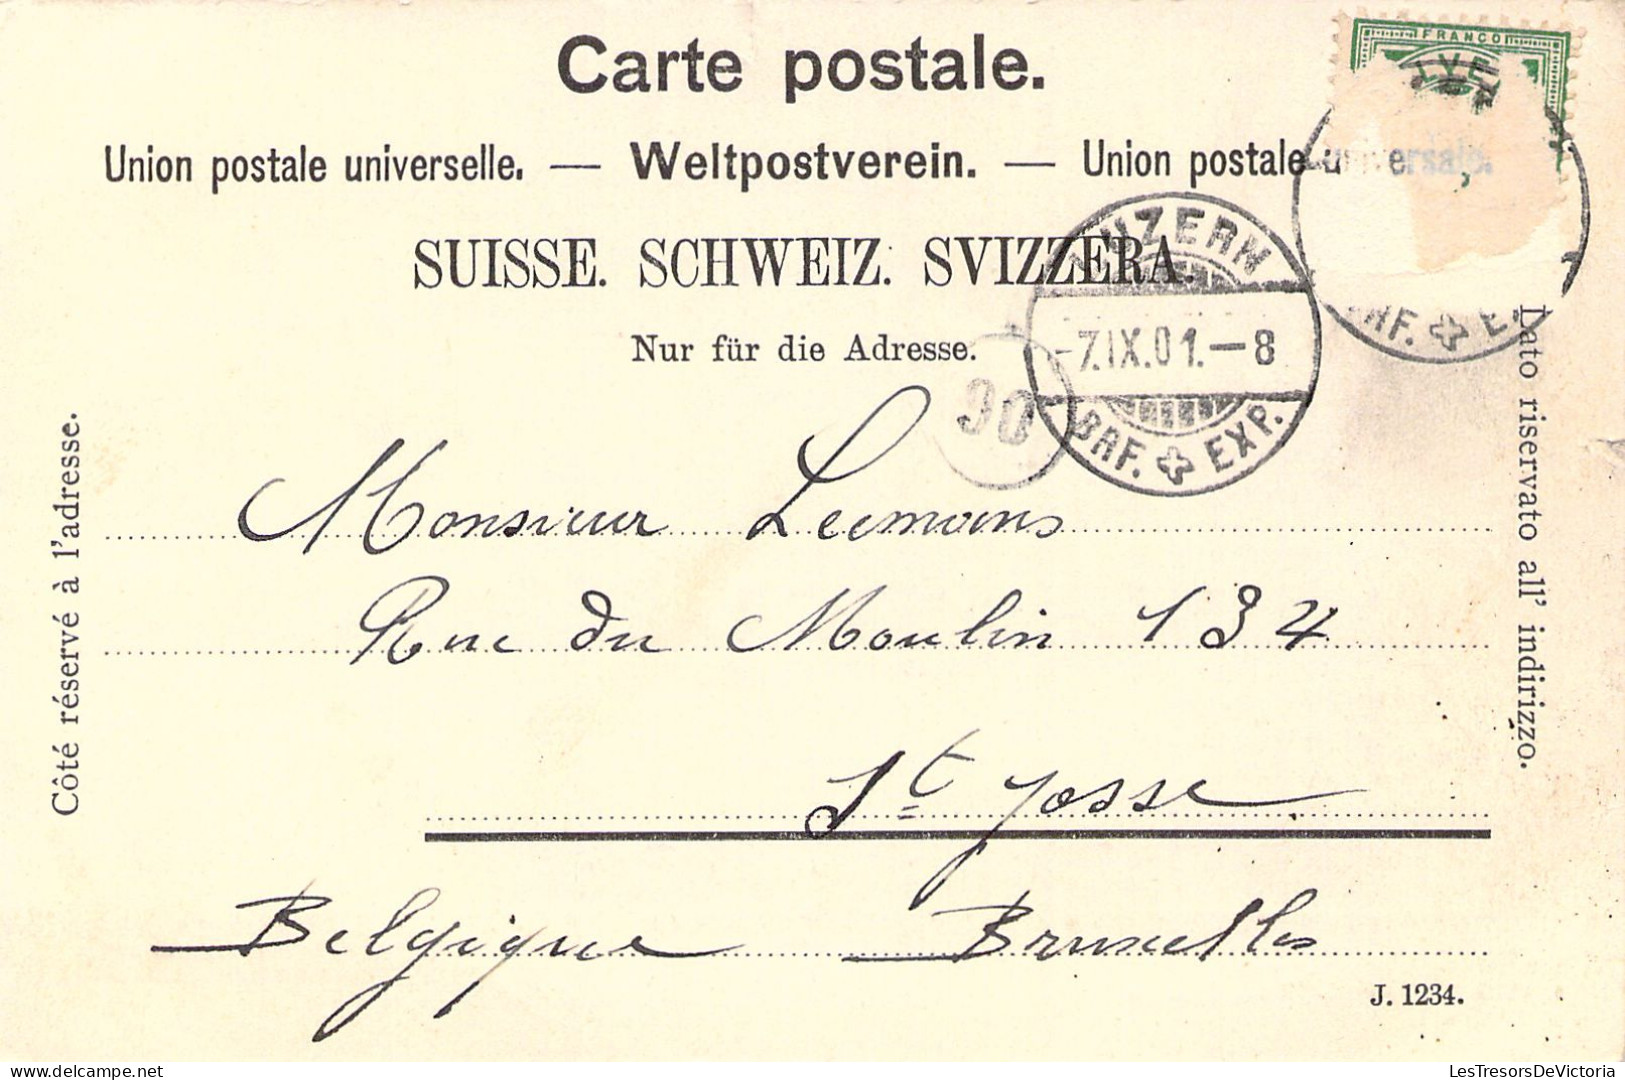 Carte postale.
FRANCO
Union postale universelle. — Weltpostverein. — Union postale universale.
SUISSE. SCHWEIZ. SVIZZERA.
LUZERN
-7.IX.01.-8
BRF. EXP.
BRF. EX
Nur für die Adresse.
90
Côté réservé à l'adresse.
Lato riservato all' indirizzo.
Monsieur Leemans
Rue du Moulin 134
St Josse
Belgique Bruxelles
J. 1234.
LesTresorsDeVictoria